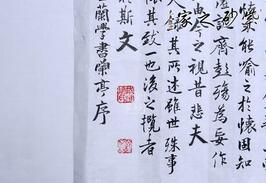 能喻之於懷固知
誕齊彭殤為妄作
由今之視昔悲夫
其所述雖世殊事
懷其致一也後之攬者
於斯文
蘭學書蘭亭序